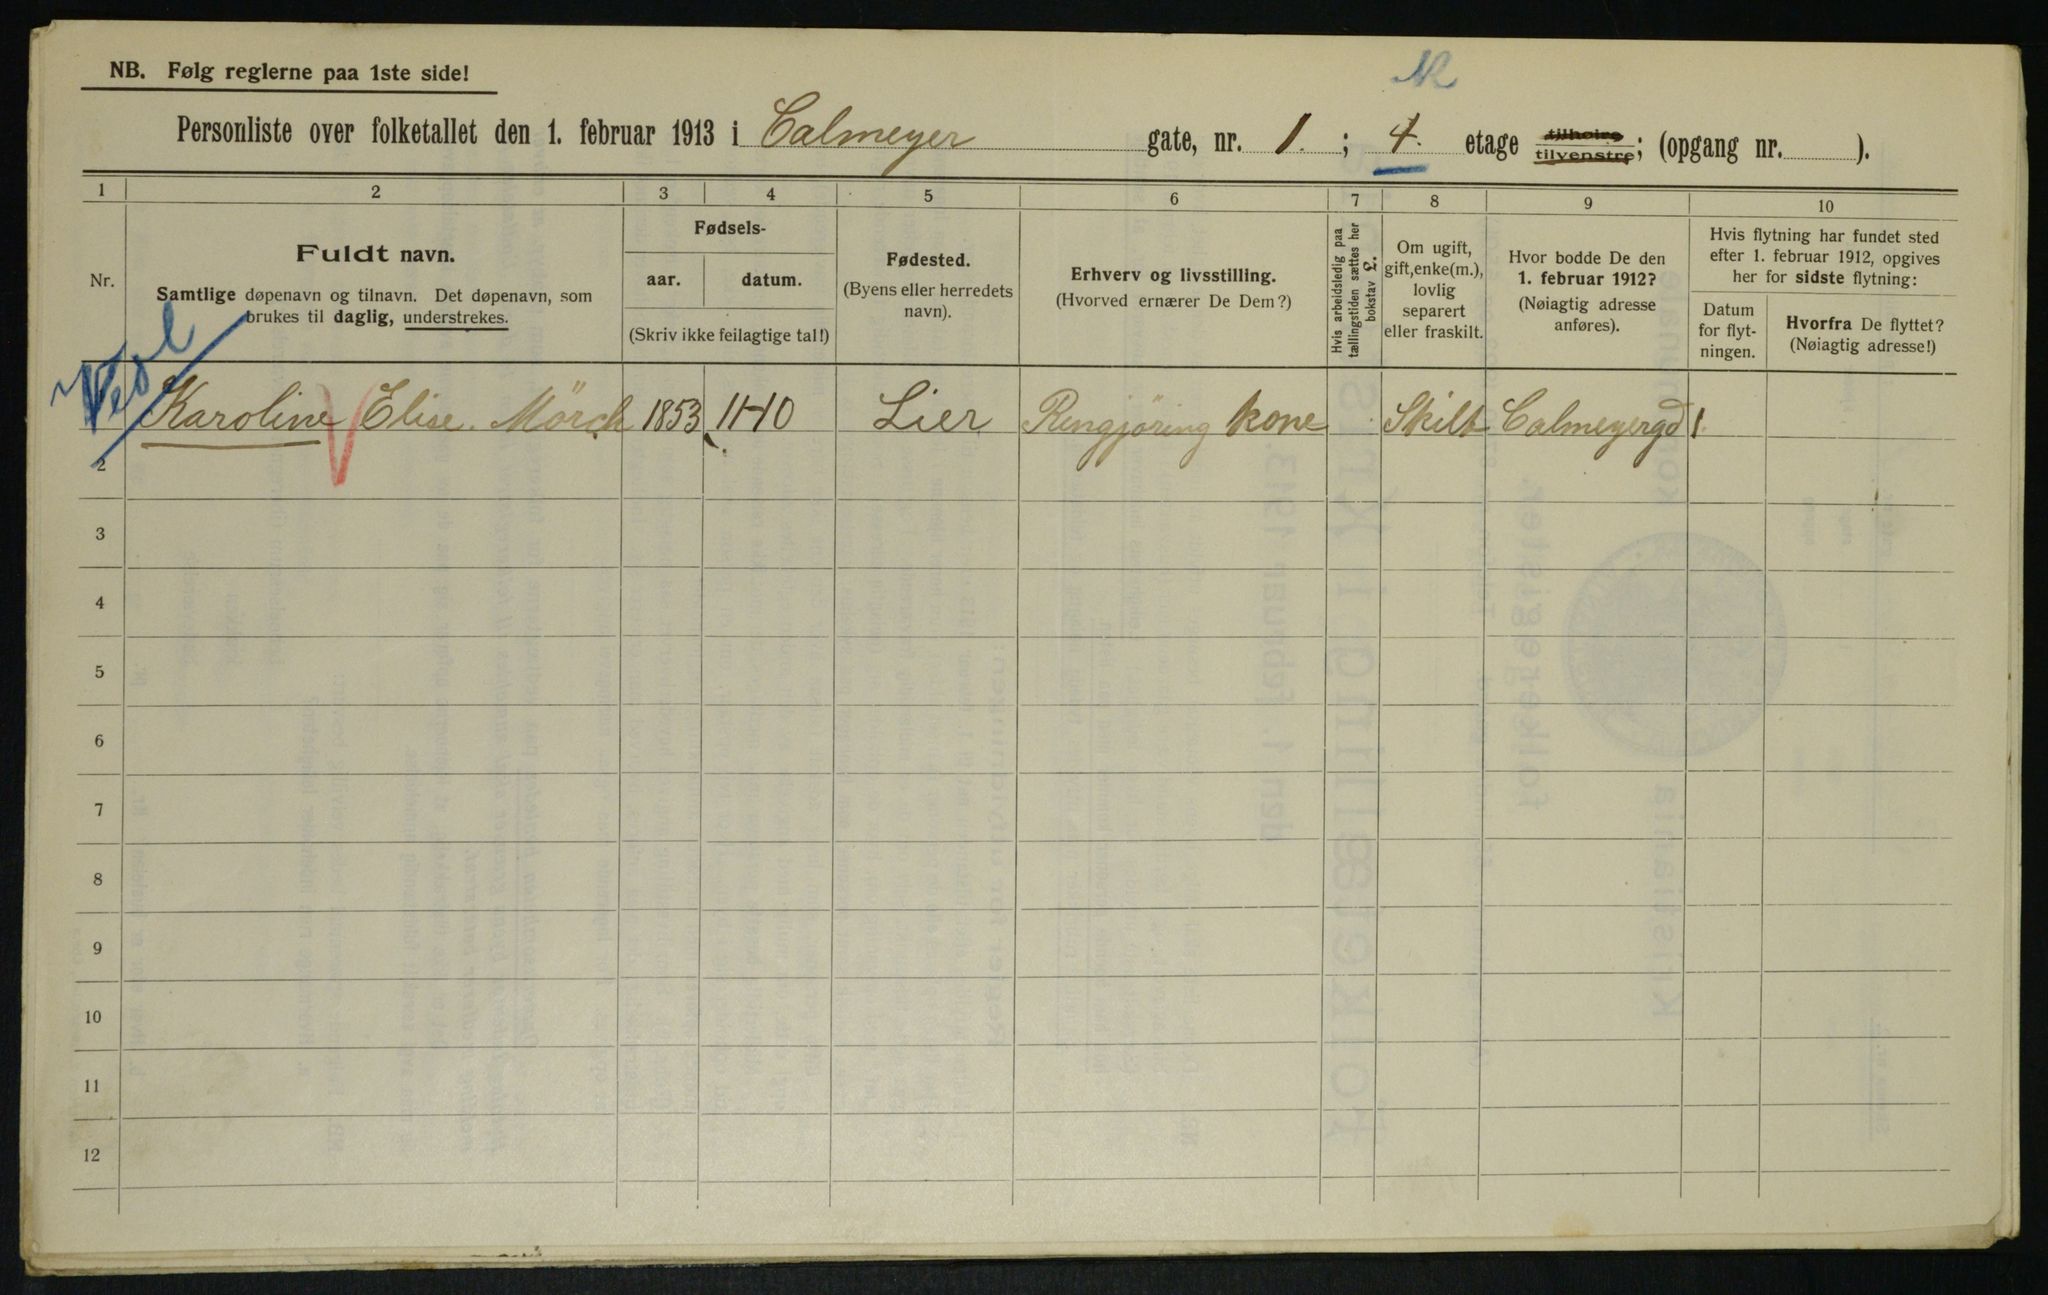 NB. Følg reglerne paa 1ste side!
Personliste over folketallet den 1. februar 1913 i Calmeyer gate, nr. 1. ; 4. etage tilhøire tilvenstre; (opgang nr. ).
1 2 3 4 5 6 7 8 9 10
Nr.
Fuldt navn.
Samtlige døpenavn og tilnavn. Det døpenavn, som
brukes til daglig, understrekes.
Fødsels-
aar. datum.
(Skriv ikke feilagtige tal!)
Fødested.
(Byens eller herredets
navn).
Erhverv og livsstilling.
(Hvorved ernærer De Dem?)
Hvis arbeidsledig paa
tællingstiden sættes her
bokstav £.
Om ugift,
gift, enke(m.),
lovlig
separert
eller fraskilt.
Hvor bodde De den
1. februar 1912?
(Nøiagtig adresse
anføres).
Hvis flytning har fundet sted
efter 1. februar 1912, opgives
her for sidste flytning:
Datum
for flyt-
ningen.
Hvorfra De flyttet?
(Nøiagtig adresse!)
Karoline Elise. Mörch 1853 11-10 Lier Rengjöring kone Skilt Calmeyergd 1
2
3
4
5
6
7
8
9
10
11
12